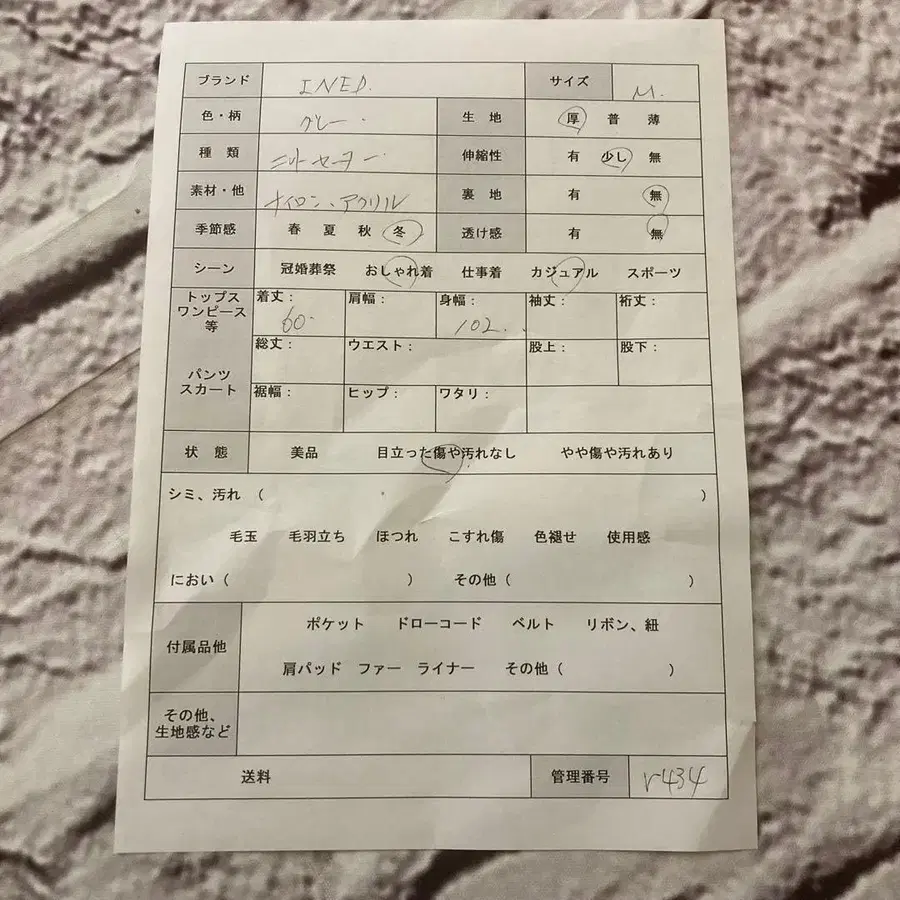 ブランド INED. サイズ M.
色・柄 グレー 生地 厚 普 薄
種類 ニットセーター 伸縮性 有 少し 無
素材・他 ナイロン、アクリル 裏地 有 無
季節感 春 夏 秋 冬 透け感 有 無
シーン 冠婚葬祭 おしゃれ着 仕事着 カジュアル スポーツ
トップス
ワンピース
等
着丈： 60 肩幅： 身幅： 102 袖丈： 裄丈：
パンツ
スカート
総丈： ウエスト： 股上： 股下：
裾幅： ヒップ： ワタリ：
状態 美品 目立った傷や汚れなし やや傷や汚れあり
シミ、汚れ （ ）
毛玉 毛羽立ち ほつれ こすれ傷 色褪せ 使用感
におい（ ） その他（ ）
付属品他 ポケット ドローコード ベルト リボン、紐
肩パッド ファー ライナー その他（ ）
その他、
生地感など
送料 管理番号 r434